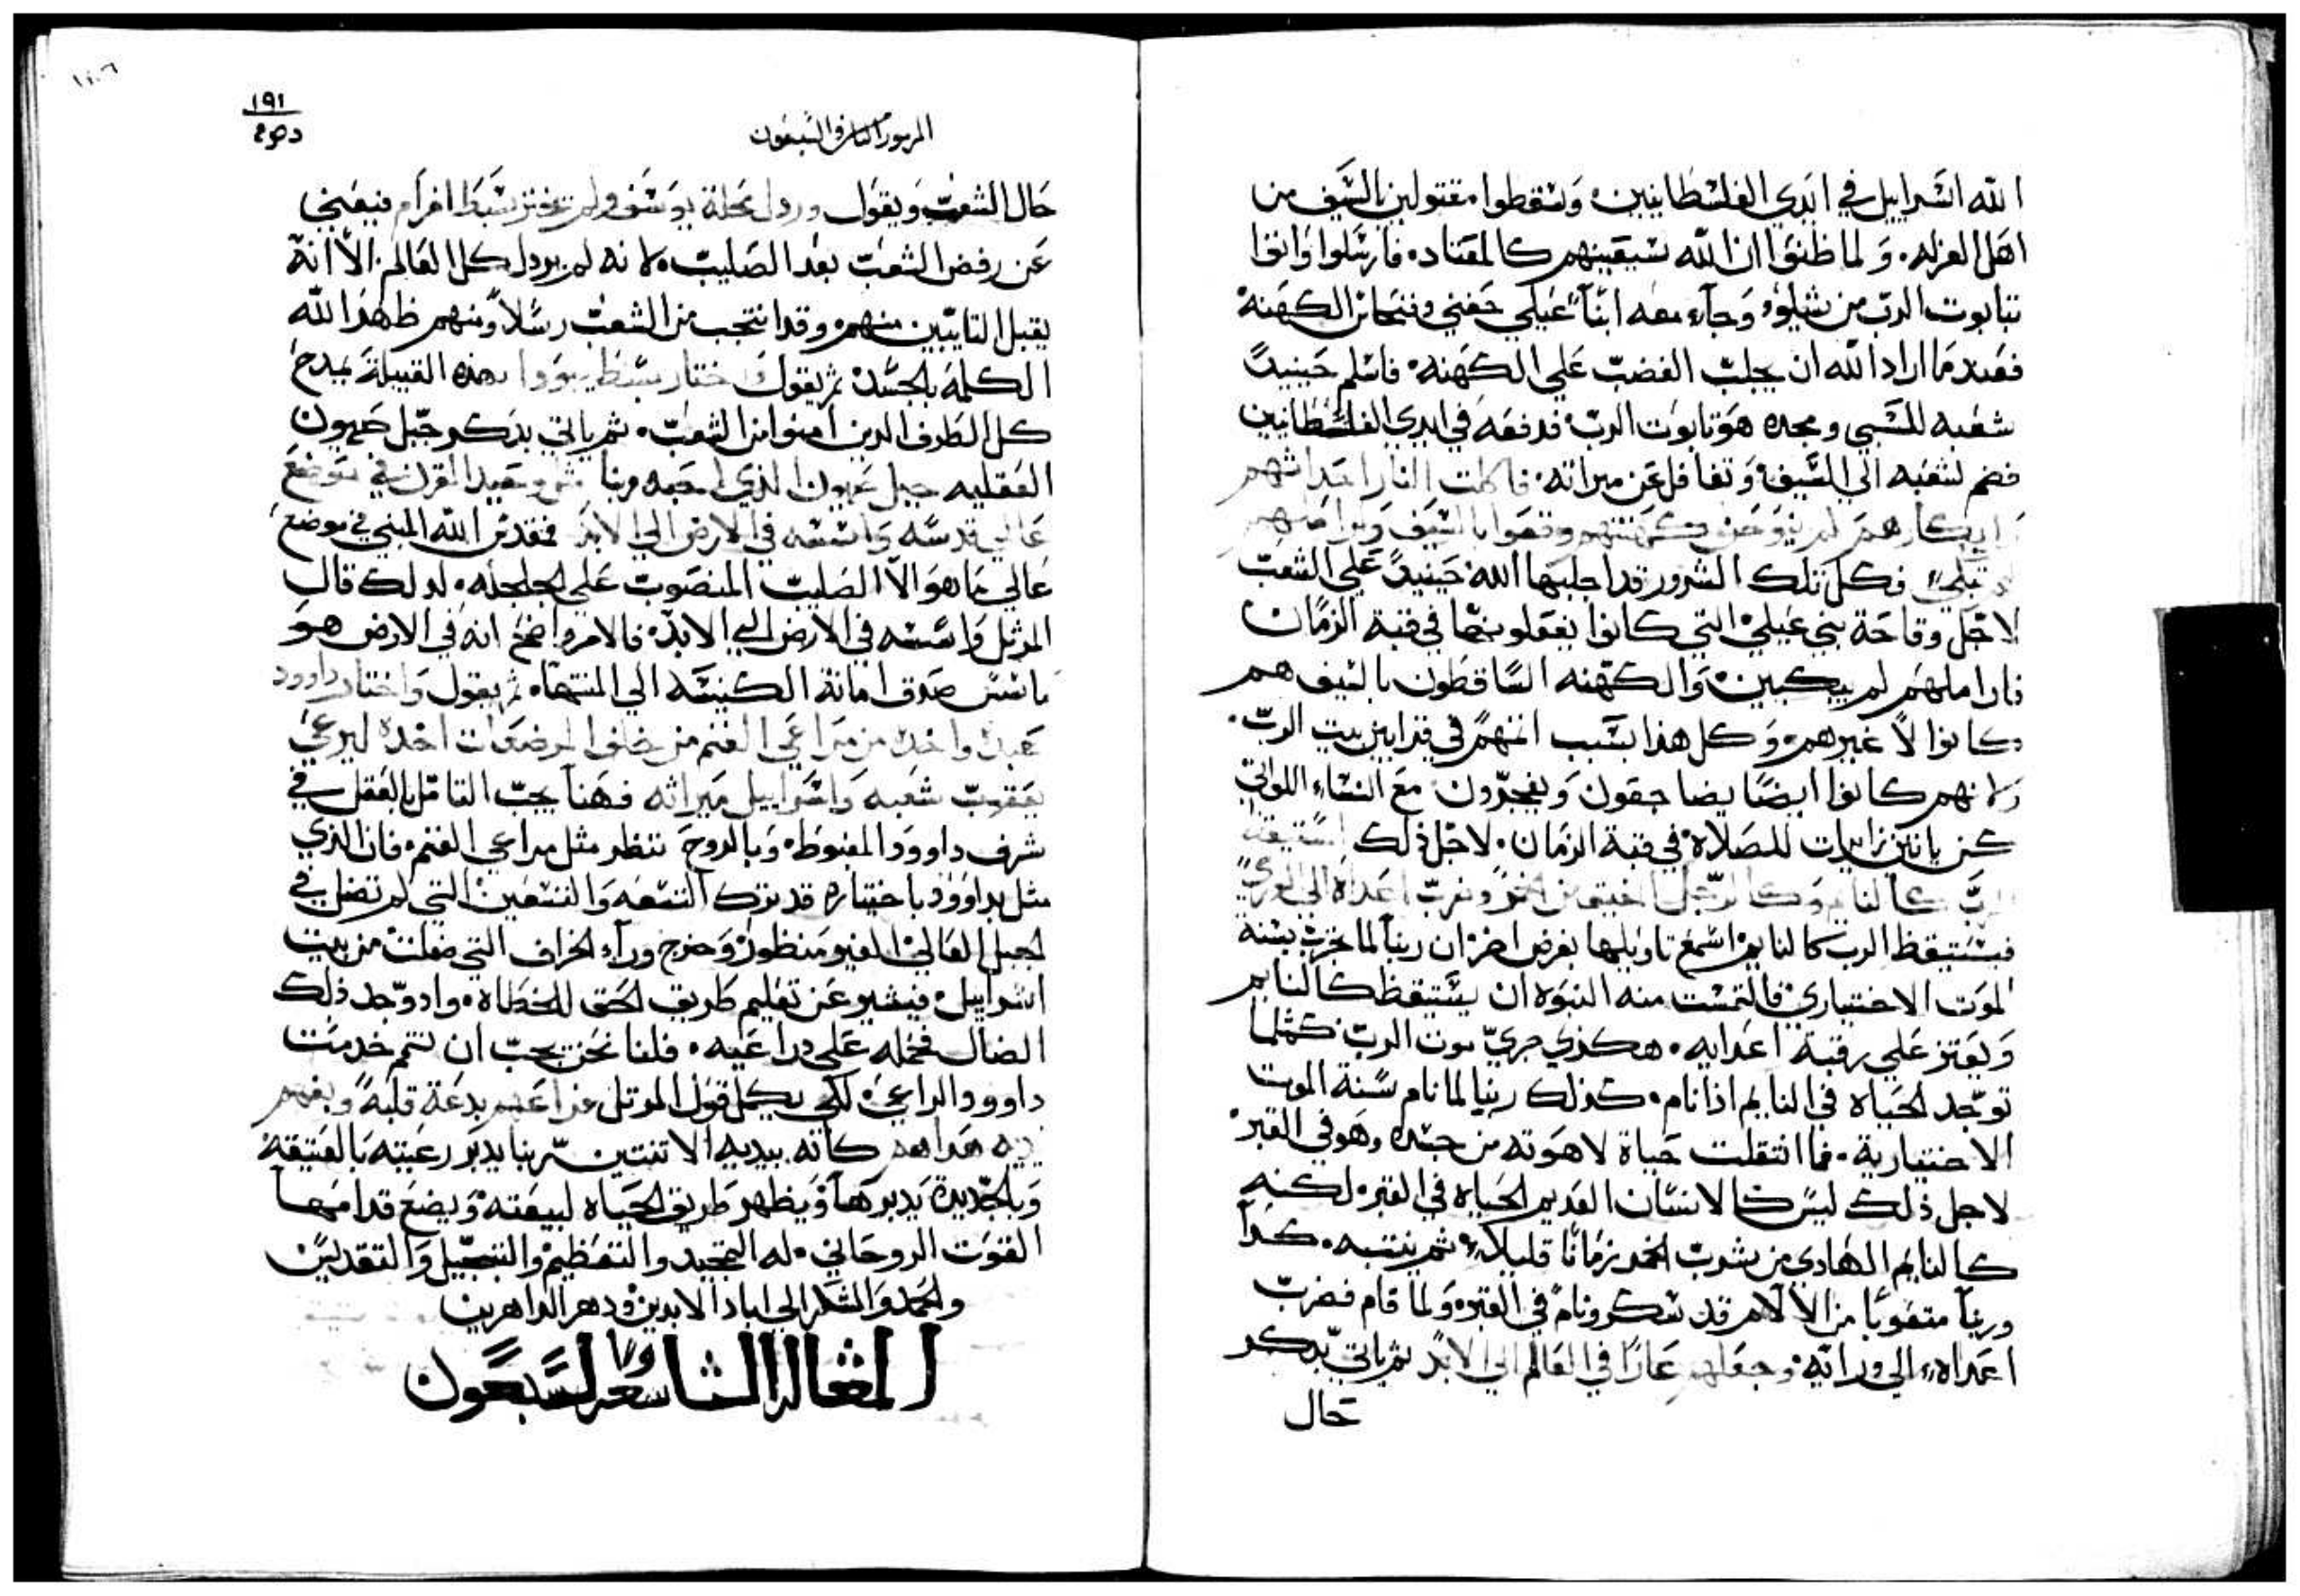 الله اسراييل في ايدي الفلسطانيين وسقطوا مقتولين بالسيف من
اهل العزله. ولما ظنوا ان الله سيعينهم كالمعتاد. فارسلوا واتوا
بتابوت الرب من شيلو. وجاء معه ابناء عيلي حفني وفنحاس الكهنة
فعندما اراد الله ان يجلب الغضب علي الكهنه. فاسلم حينيدٍ
شعبه للسبي ومجده هو تابوت الرب. فدفعه في ايدي الفلسطانيين
فضم لشعبه الي السيف وتغافل عن ميراته. فاكلت النار احداثهم
وابكارهم لم ينوحن وكهنتهم وقعوا بالسيف
فكل تلك الشرور قد اجلبها الله حينيدٍ علي الشعب
لاجل وقاحة بني عيلي التي كانوا يفعلونها في قبة الزمان
فاراملهم لم يبكين والكهنه الساقطون بالسيف هم
كانوا لا غيرهم. وكل هذا بسبب انهم في قرابين بيت الرب.
ولانهم كانوا ايضًا يضاجعون ويفجرون مع النساء اللواتي
كن ياتين زايرات للصلاة في قبة الزمان. لاجل ذلك استيقظ
الرب كالنايم وكالرجل المفيق من الخمر وضرب اعداه الي الوري
فيستيقظ الرب كالنايم اسمع تاويلها بغرض اخر ان ربنا لما بسنة
الموت الاختياري فالتمست منه النبوه ان يستيقظ كالنايم
ويعتز علي رقبة اعدايه. هكذي جري بموت الرب كمثلما
توجد الحياة في النايم اذا نام. كذلك ربنا لما نام سنة الموت
الاختيارية. فما انتقلت حياة لاهوته من جسده وهو في القبر
لاجل ذلك ليس كالانسان العديم الحياه في القبر. لكنه
كالنايم الهادي من شرب الخمر زمانًا قليلاً. ثم ينتبه. كذا
وربنا متعوبًا من الالام قد سكر ونام في القبر. ولما قام فضرب
اعداه الي ورايه وجعلهم عارًا في العالم الي الابد ثم ياتي بذكر
حال
١٩١
المزمور الثامن والسبعون
حال الشعب ويقول وردل محلة يوسف ولم يختر سبط افرام فيعني
عن رفض الشعب بعد الصليب. لانه لم يردل كل العالم. الا انه
يقبل التايبين منهم. وقد انتجب من الشعب رسلاً ومنهم ظهر الله
الكلمة بالجسد ثم يقول واختار سبط يهودا بهذه القبيلة يمدح
كل الطرف الدين امنوا من الشعب. ثم ياتي بذكر جبل صهيون
العقليه جبل صهيون الذي احبه وبنا مثل وحيد القرن في موضع
عالي قدسه واسسه في الارض الي الابد فقدس الله المبني في موضع
عالي ما هو الا الصليب المنصوب علي الجلجله. لدلك قال
المرتل واسسه في الارض الي الابد. فالامر واضح انه في الارض هو
باسس صدق امانة الكنيسة الي المنتها. ثم يقول واختار داوود
عبده واخده من مراعي الغنم من خلف المرضعات اخده ليرعي
يعقوب شعبه واسراييل ميراثه فهنا يجب التامل بالعقل في
شرف داوود المغبوط. وبالروح تنظر مثل مراعي الغنم. فان الذي
مثل بداوود باختياره قد ترك التسعه والتسعين التي لم تضل في
الجبل العالي الغير منظور وخرج وراء الخراف التي ضلت من بيت
اسراييل. فيشير عن تعليم طريق الحق للخطاه. واد وجد ذلك
الضال فحمله علي دراعيه. فلنا نحن يجب ان نتمم خدمت
داوود الراعي. لكي يكمل قول المرتل فراعاهم بدعة قلبه وبفهم
يديه هداهم كانه بيديه الاتنتين ربنا يدبر رعيته بالعتيقة
وبالجديدة يدبرها ويظهر طريق الحياه لبيعته ويضع قدامها
القوت الروحاني. له التمجيد والتعظيم والتبجيل والتقديس
والحمد والشكر الي اباد الابدين ودهر الداهرين
المقالة التاسعة والسبعون